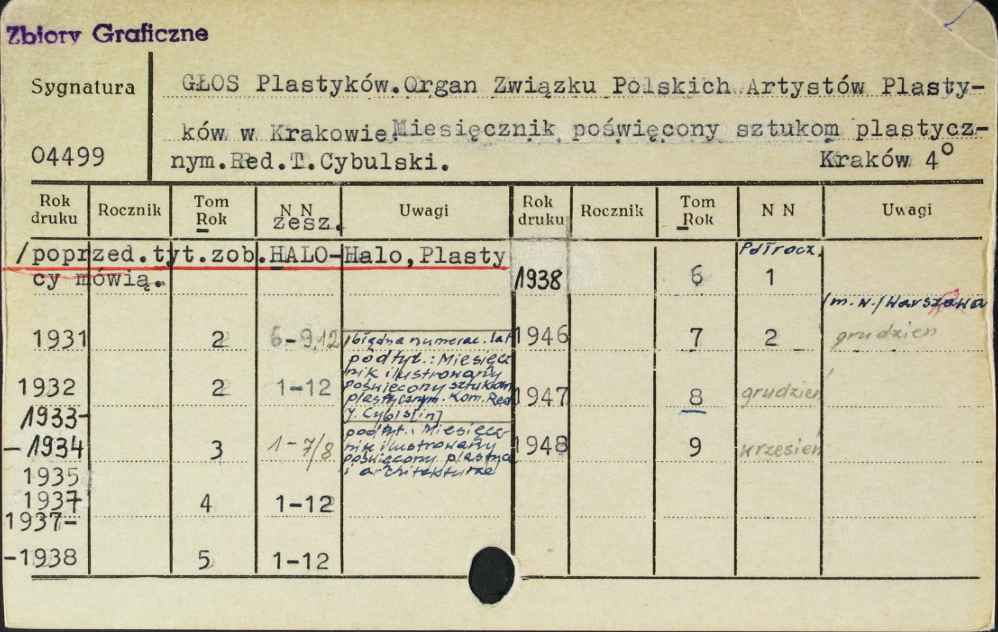 Zbiory Graficzne
Sygnatura
04499
GŁOS Plastyków.Organ Związku Polskich Artystów Plasty-
ków w Krakowie.Miesięcznik poświęcony sztukom plastycz-
nym.Red.T.Cybulski. Kraków 4°
Rok druku Rocznik Tom Rok N N zesz. Uwagi Rok druku Rocznik Tom Rok N N Uwagi
/poprzed.tyt.zob.HALO-Halo,Plasty
cy mówią.
1931 2 6-9,12
/błędna numerac. lat
podtyt.: Miesięcz
nik ilustrowany
poświęcony sztukom
plastycznym. Kom. Red.
1932 2 1-12
1933-
-1934 3 1-7/8
podtyt.: Miesięcz
nik ilustrowany
poświęcony plastyce
i architekturze
1935
1937 4 1-12
1937-
-1938 5 1-12
1938 6 Półrocz. 1
/m.w./Warszawa
1946 7 2 grudzień
1947 8 grudzień
1948 9 wrzesień